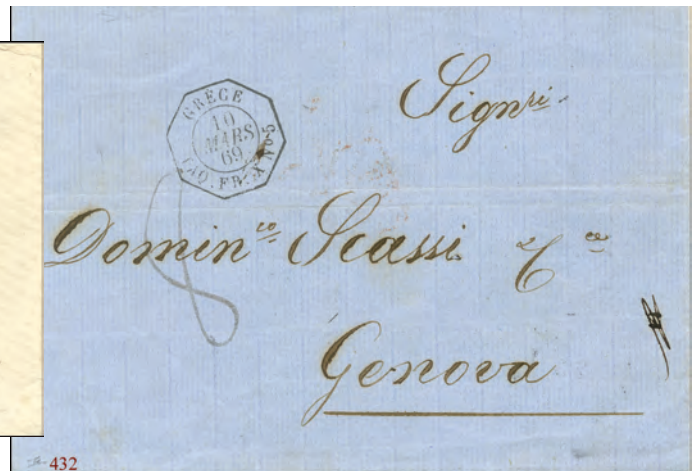 GRÈCE
10
MARS
69
PAQ. FR. X No 5
Signri
8
Dominco Scassi & Ce
Genova
432